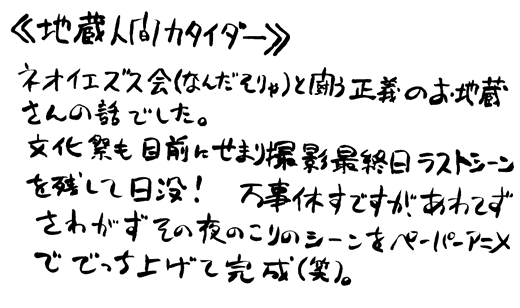 ≪地蔵人間カタイダー≫
ネオイエズス会(なんだそりゃ)と闘う正義のお地蔵
さんの話でした。
文化祭も目前にせまり撮影最終日ラストシーン
を残して日没! 万事休すですが、あわてず
さわがずその夜のこりのシーンをペーパーアニメ
ででっち上げて完成(笑)。